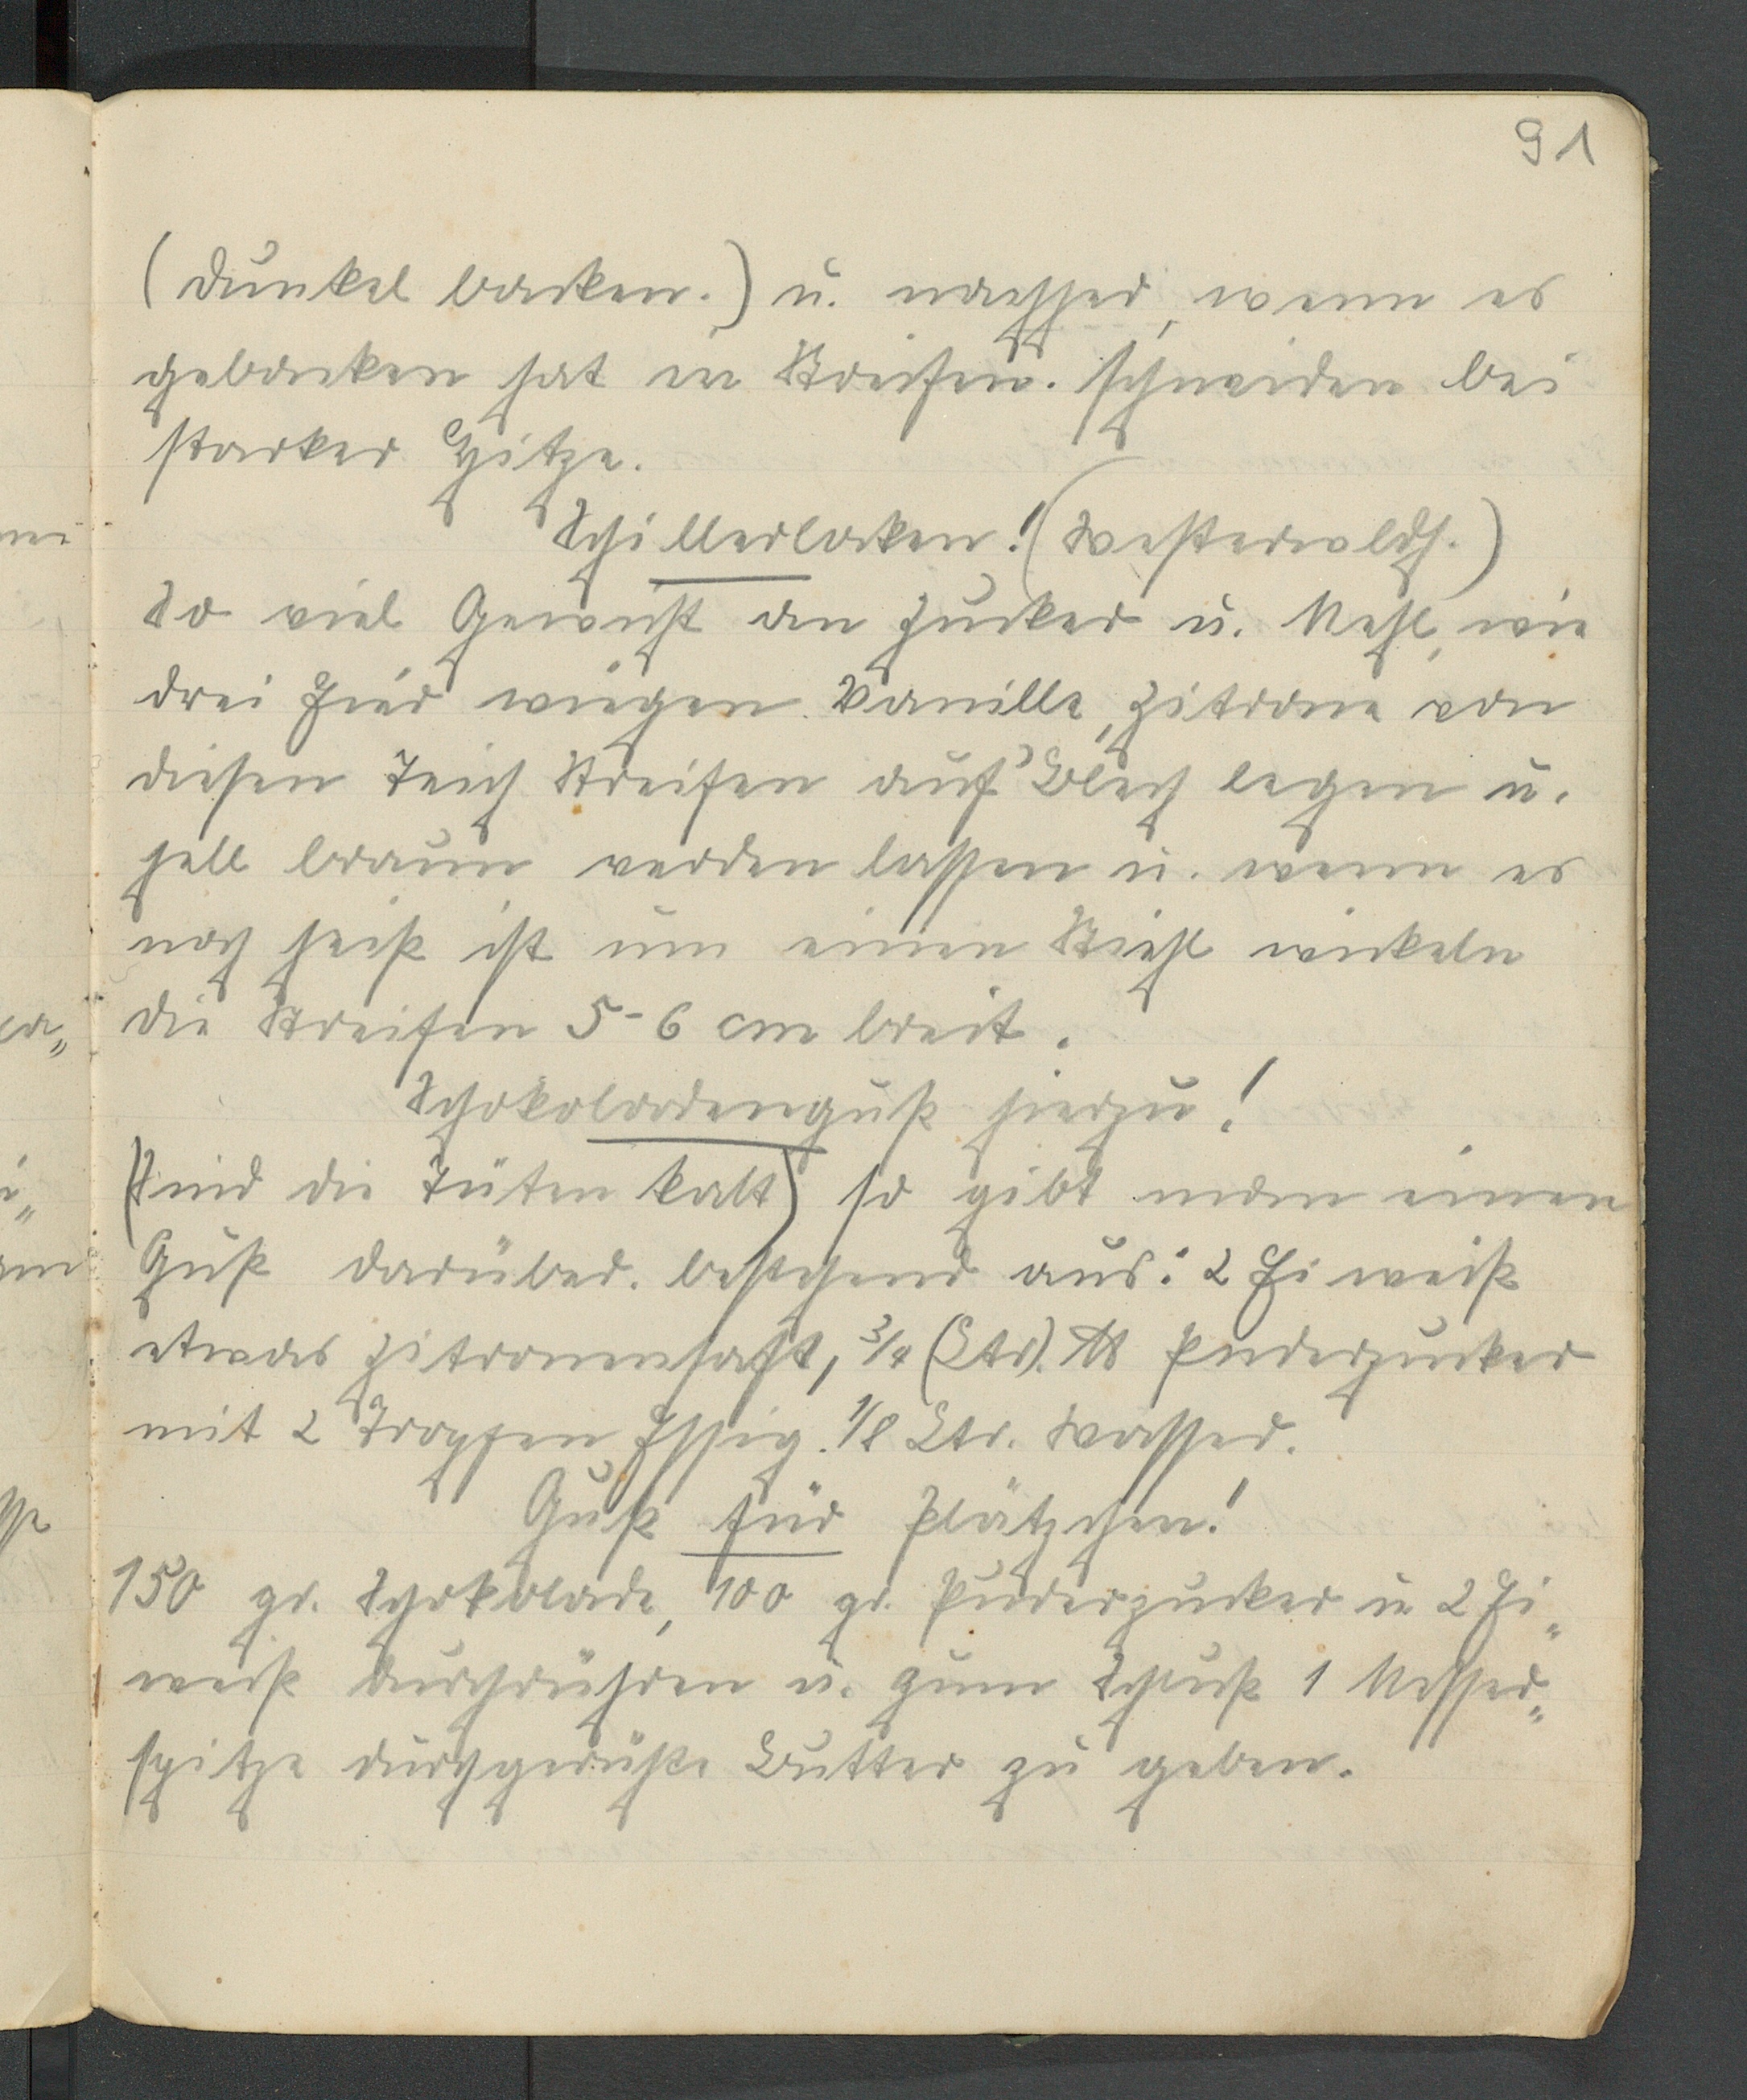 91
(dunkel backen.) u. nachher, wenn es
gebacken hat in Streifen. schneiden bei
starker Hitze.
Schillerlocken! (Westerwaldh.)
So viel Gewicht an Zucker u. Mehl, wie
drei Eier wiegen. Vanille, Zitrone von
diesen Teich Streifen auf's Blech legen u.
hell braun werden lassen u. wenn es
noch heiß ist um einen Stiehl wickeln
die Streifen 5-6 cm breit.
Schokoladenguß hierzu!
(Sind die Tüten kalt) so gibt man einen
Guß darüber. bestehend aus: 2 Eiweiß
etwas Zitronensaft, 3/4 (Ltr). ℔ Puderzucker
mit 2 Tropfen Essig. 1/8 Ltr. Wasser.
Guß für Plätzchen!
150 gr. Schokolade, 100 gr. Puderzucker u. 2 Ei„
weiß durchrühren u. zum Schluß 1 Messer„
spitze durchgerührte Butter zu geben.